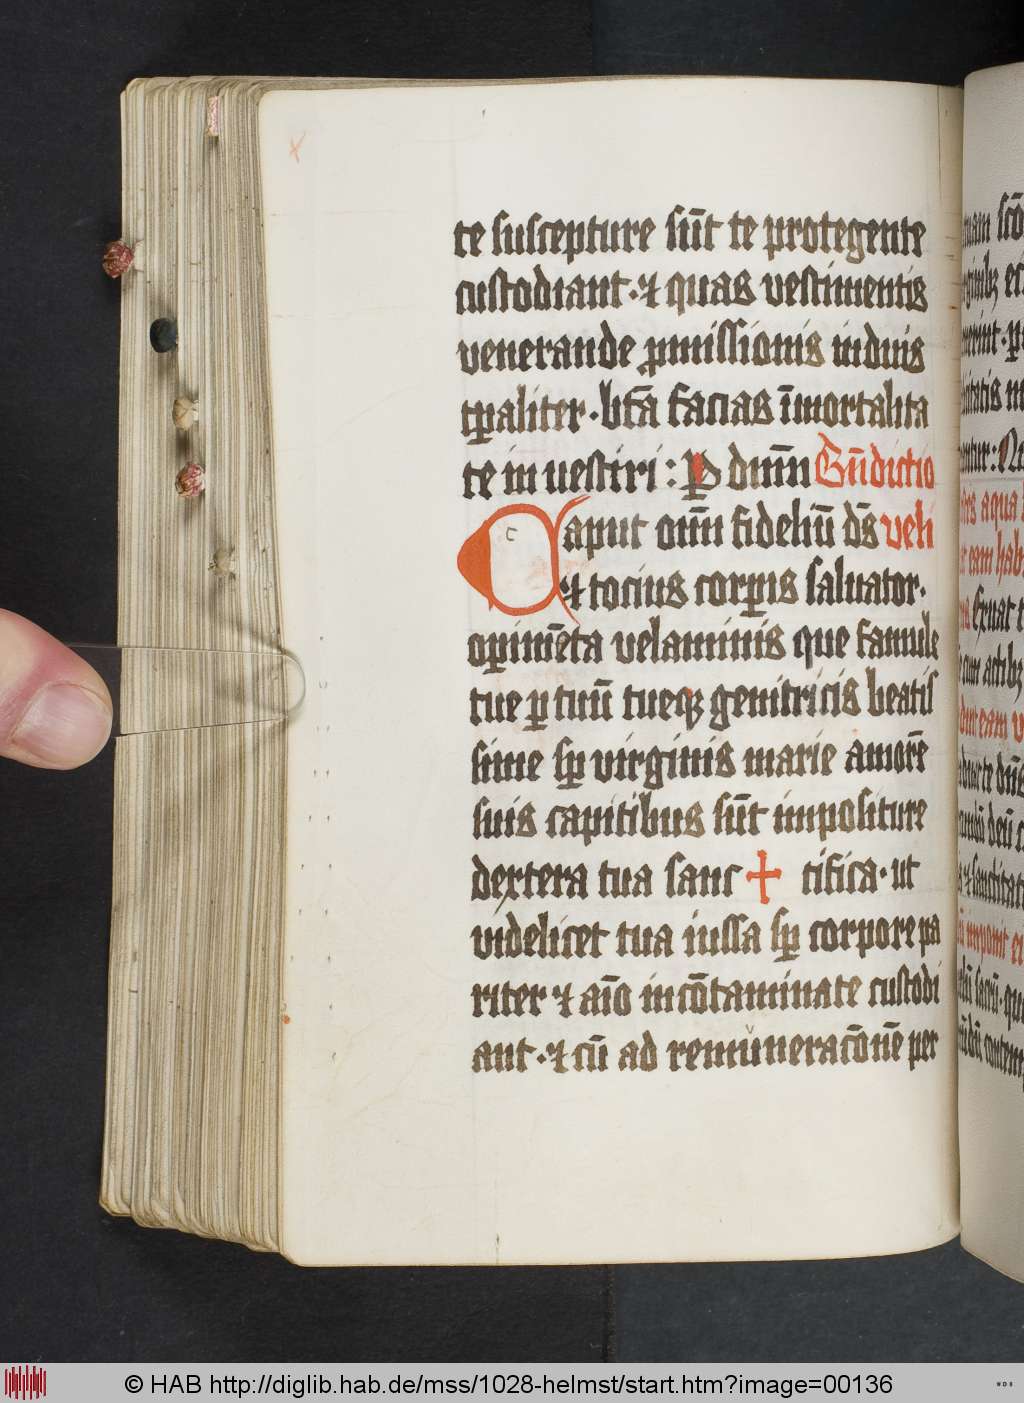 te suscepture sūt te protegente
custodiant · ⁊ quas vestimentis
venerande ꝓmissionis induis
tꝑaliter · btā facias īmortalita
te in uestiri : P dnm̄ Bn̄dictio
Caput om̄ fideliū ds̄ veli
⁊ tocius corꝑis saluator ·
oꝑimēta velaminis que famule
tue ꝑ tuū tueqꝫ genitricis beatis
sime sꝑ virginis marie amorē
suis capitibus sūt impositure
dextera tua sanc + tifica · ut
videlicet tua iussa sꝑ corpore pa
riter ⁊ aīo incōtaminate custodi
ant · ⁊ cū ad remuneracōnē per
uam
aqua
eam hab
Exuat
cum actibꝫ
eam
te
imponit
© HAB http://diglib.hab.de/mss/1028-helmst/start.htm?image=00136